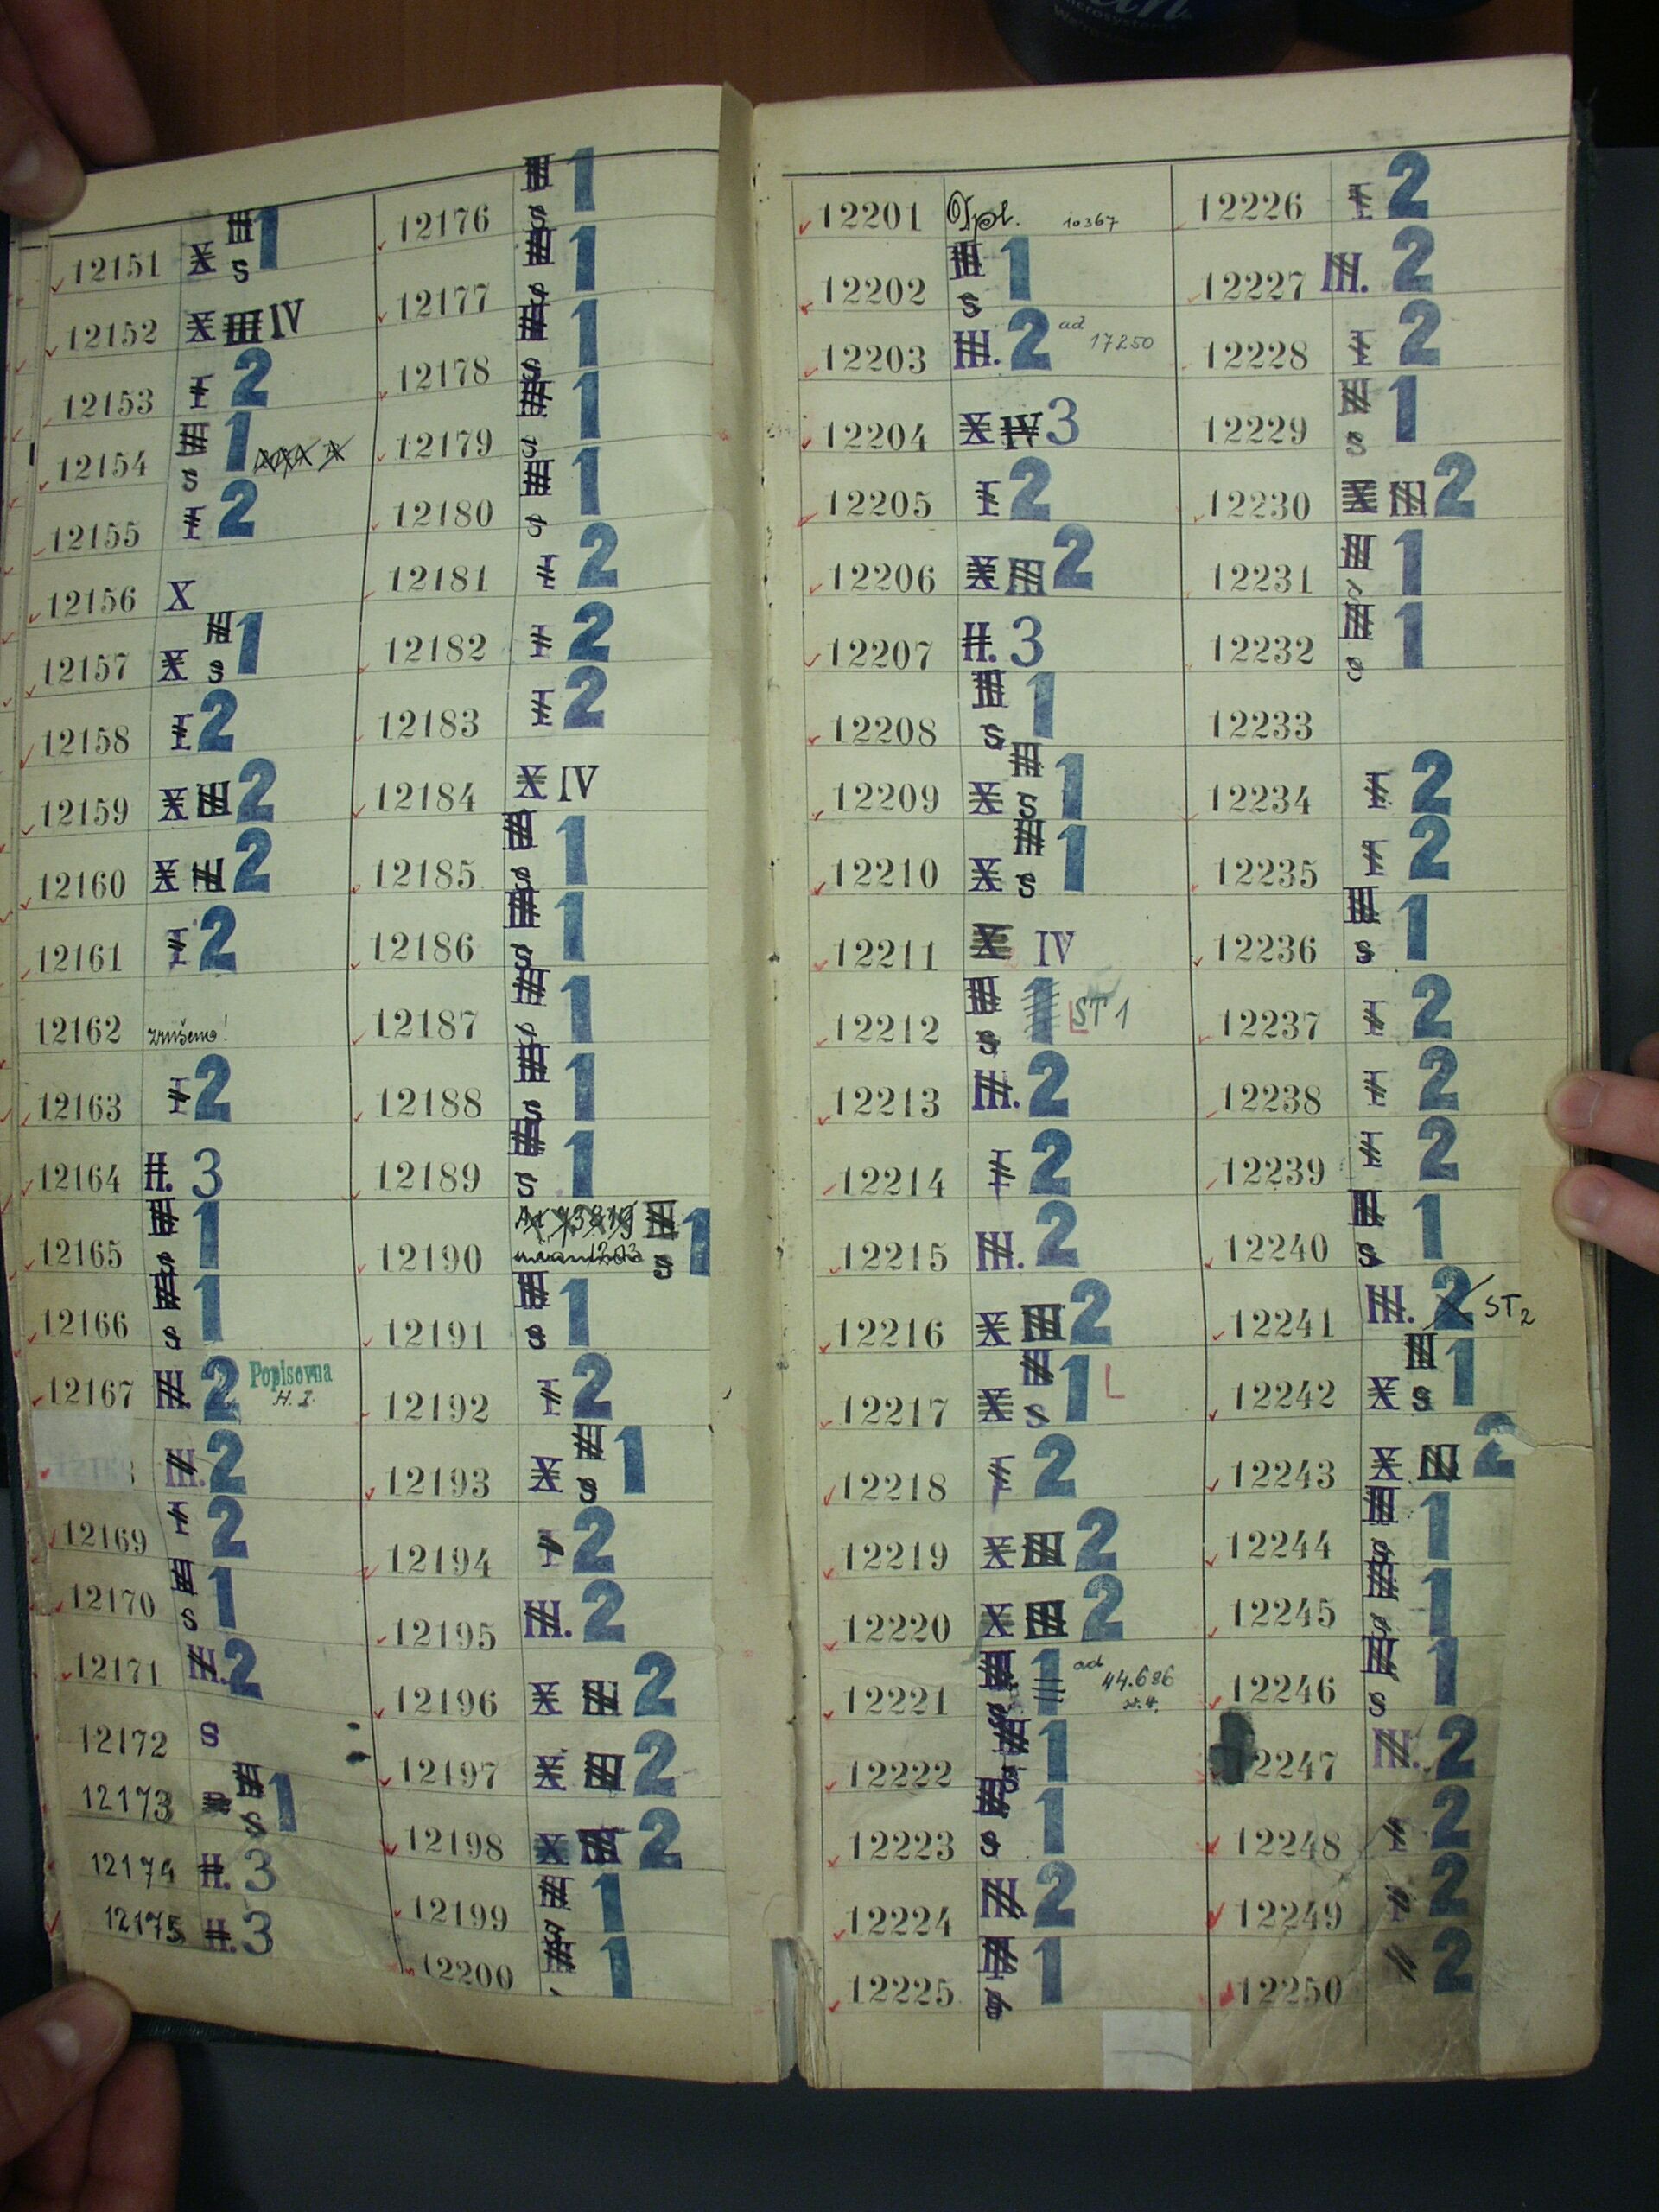 12151 X III S 1
12152 X III IV
12153 I 2
12154 III S 1
12155 I 2
12156 X
12157 X III S 1
12158 I 2
12159 X III 2
12160 X III 2
12161 I 2
12162 zrušeno!
12163 I 2
12164 H. 3
12165 III S 1
12166 III S 1
12167 III. 2 Popisovna H. I.
III. 2
12169 I 2
12170 III S 1
12171 III. 2
12172 S
12173 III S 1
12174 H. 3
12175 H. 3
12176 III S 1
12177 III S 1
12178 III S 1
12179 III S 1
12180 III S 1
12181 I 2
12182 I 2
12183 I 2
12184 X IV
12185 III S 1
12186 III S 1
12187 III S 1
12188 III S 1
12189 III S 1
12190 III S 1
12191 III S 1
12192 I 2
12193 X III S 1
12194 I 2
12195 III. 2
12196 X III 2
12197 X III 2
12198 X III 2
12199 III S 1
12200 III 1
12201 Opl. 10367
12202 III S 1
12203 III. 2 ad 17250
12204 X IV 3
12205 I 2
12206 X III 2
12207 H. 3
12208 III S 1
12209 X III S 1
12210 X III S 1
12211 X IV
12212 III S 1 L ST 1
12213 III. 2
12214 I 2
12215 III. 2
12216 X III 2
12217 X III S 1 L
12218 I 2
12219 X III 2
12220 X III 2
12221 III S 1 ad 44.686
12222 III S 1
12223 III S 1
12224 III. 2
12225 III S 1
12226 I 2
12227 III. 2
12228 I 2
12229 III S 1
12230 X III 2
12231 III S 1
12232 III S 1
12233
12234 I 2
12235 I 2
12236 III S 1
12237 I 2
12238 I 2
12239 I 2
12240 III S 1
12241 III. 2 ST2
12242 X III S 1
12243 X III 2
12244 III S 1
12245 III S 1
12246 III S 1
2247 III. 2
12248 I 2
12249 I 2
12250 2